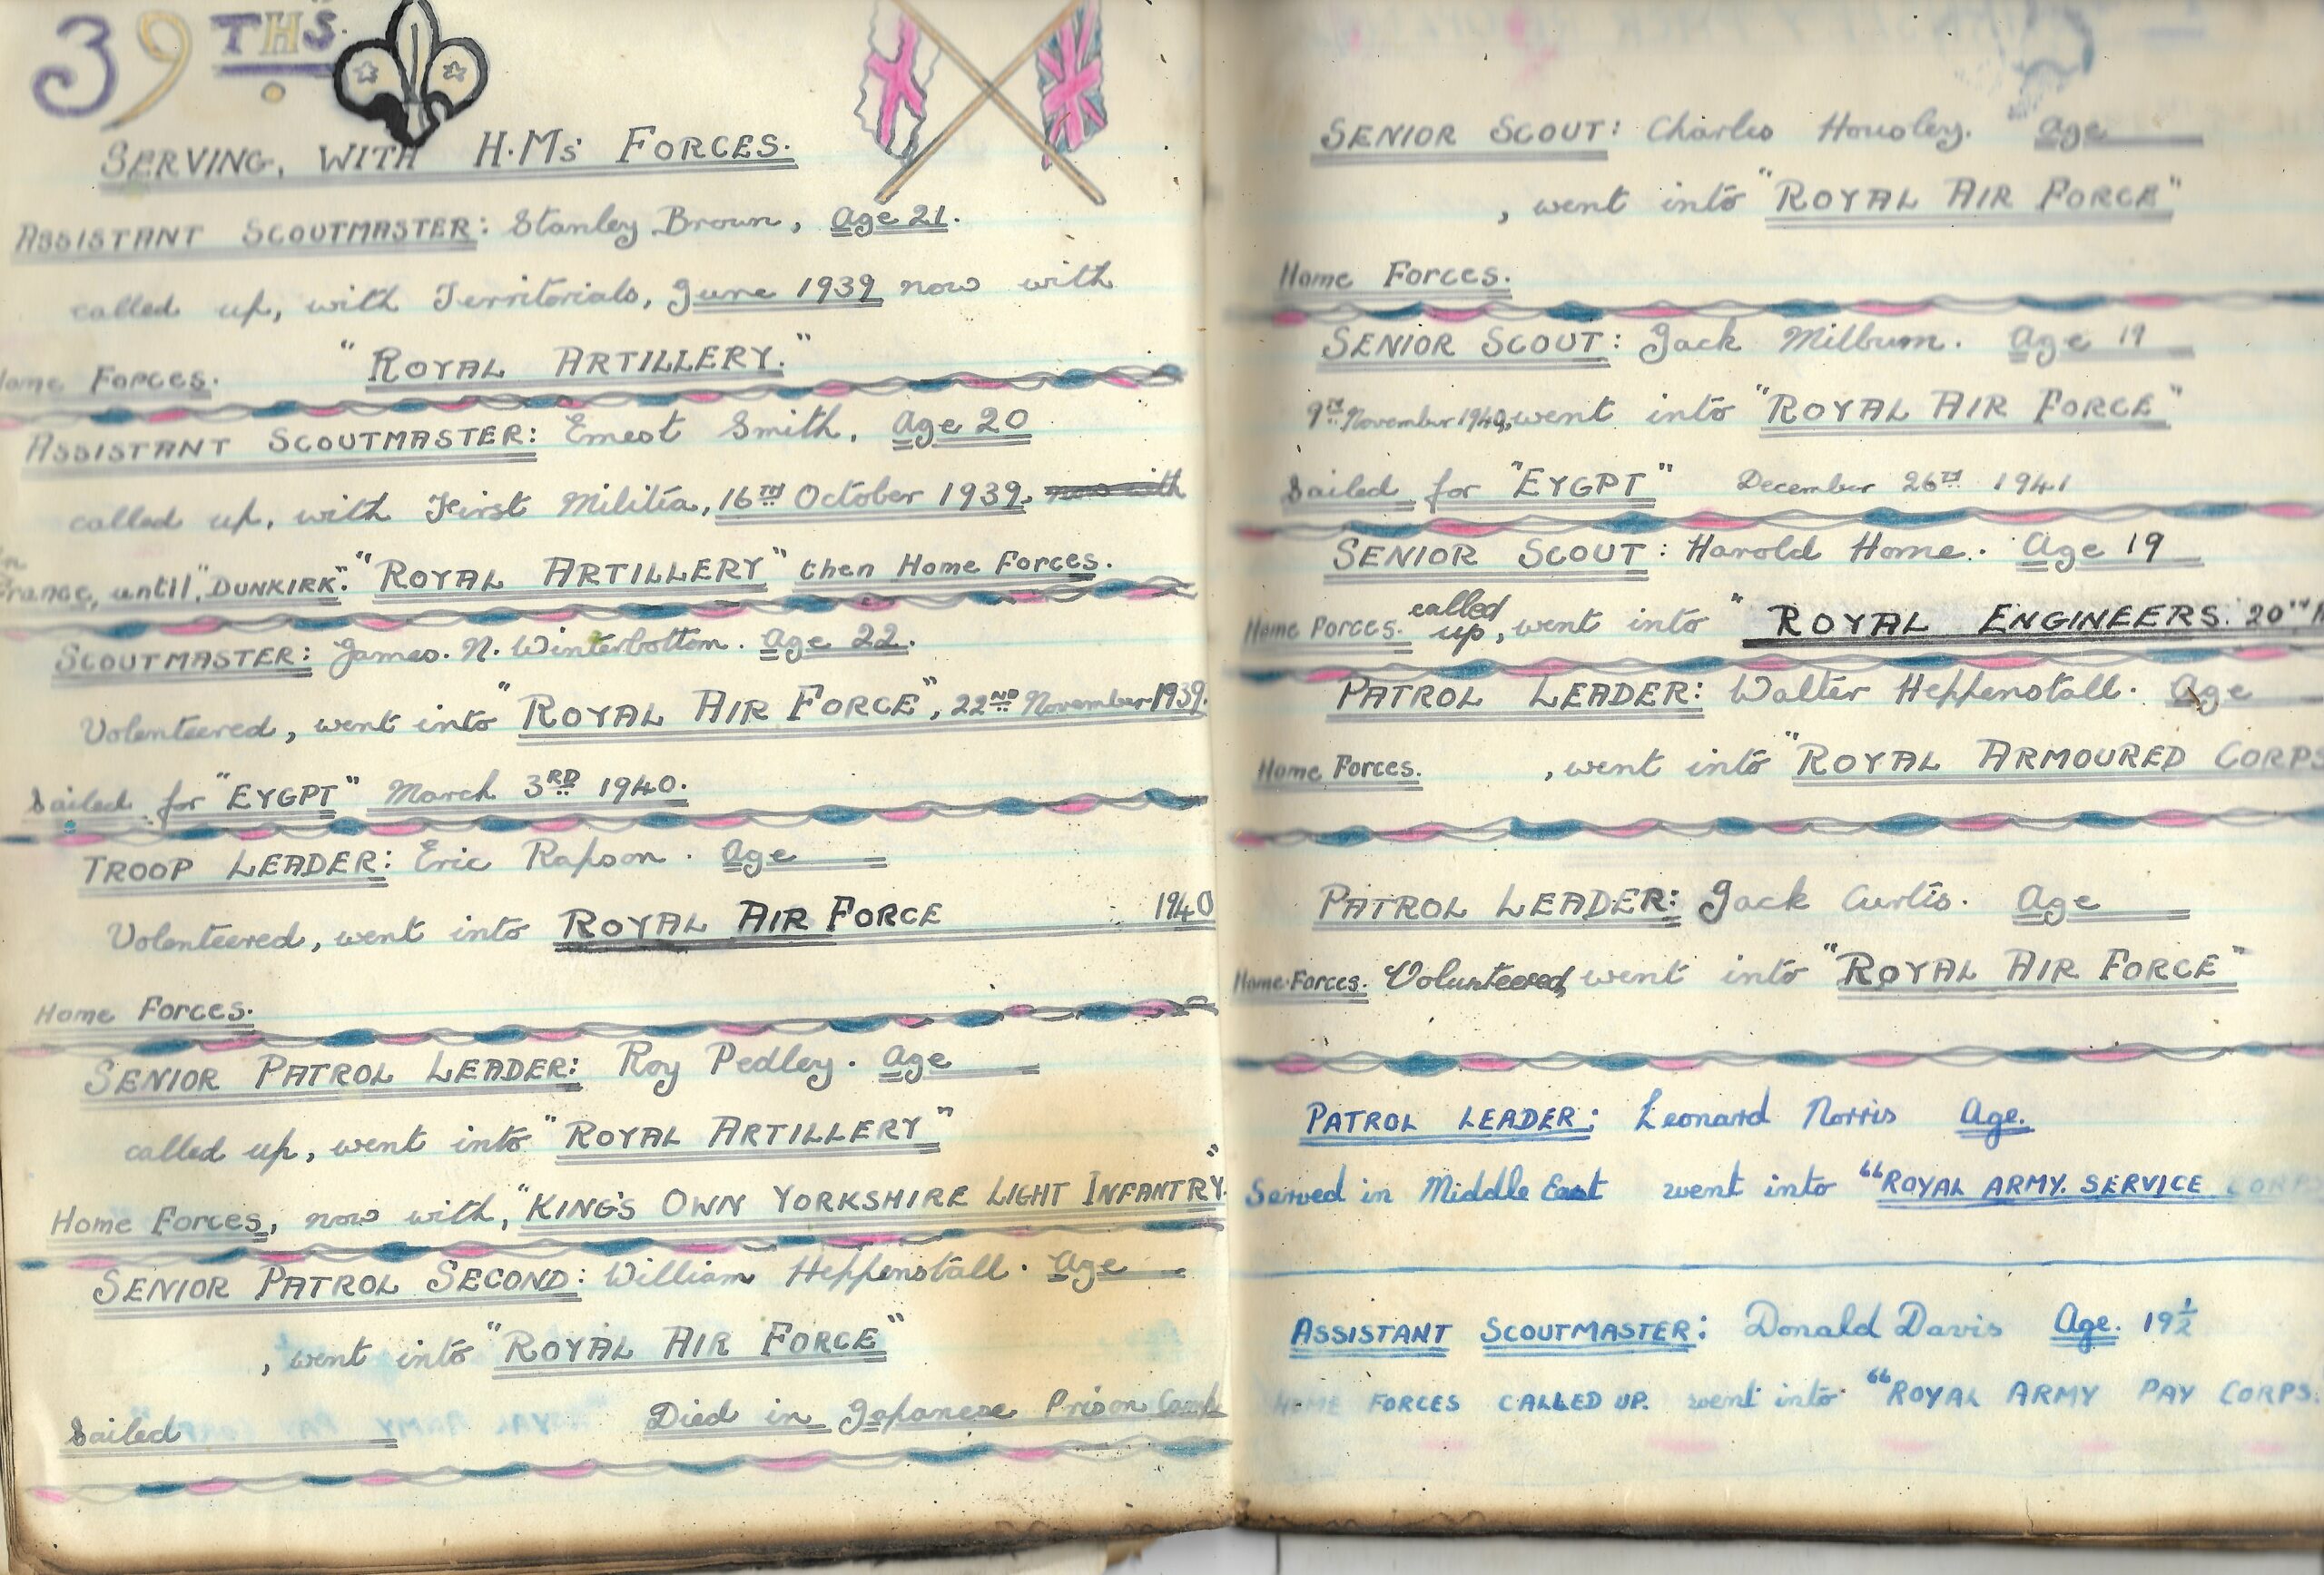 39THS.
SERVING, WITH H.Ms FORCES.
ASSISTANT SCOUTMASTER: Stanley Brown, Age 21.
called up, with Territorials, June 1939 now with
Home Forces. "ROYAL ARTILLERY."
ASSISTANT SCOUTMASTER: Ernest Smith, Age 20
called up, with First Militia, 16TH October 1939, now with
In
France, until "DUNKIRK". "ROYAL ARTILLERY" then Home Forces.
SCOUTMASTER: James. N. Winterbottom. Age 22.
Volenteered, went into "ROYAL AIR FORCE", 22ND November 1939.
Sailed for "EYGPT" March 3RD 1940.
TROOP LEADER: Eric Rapson. Age
Volenteered, went into ROYAL AIR FORCE 1940
Home Forces.
SENIOR PATROL LEADER: Roy Pedley. Age
called up, went into "ROYAL ARTILLERY"
Home Forces, now with, "KING'S OWN YORKSHIRE LIGHT INFANTRY"
SENIOR PATROL SECOND: William Heppenstall. Age
, went into "ROYAL AIR FORCE"
Sailed Died in Japanese Prison Camp
SENIOR SCOUT: Charles Housley. Age
, went into "ROYAL AIR FORCE"
Home Forces.
SENIOR SCOUT: Jack Milburn. Age 19
9TH November 1940, went into "ROYAL AIR FORCE"
Sailed for "EYGPT" December 26TH 1941
SENIOR SCOUT: Harold Horne. Age 19
Home Forces. called up, went into "ROYAL ENGINEERS. 20TH
PATROL LEADER: Walter Heppenstall. Age
Home Forces. , went into "ROYAL ARMOURED CORPS
PATROL LEADER: Jack Curtis. Age
Home Forces. Volunteered, went into "ROYAL AIR FORCE"
PATROL LEADER: Leonard Norris Age.
Served in Middle East went into "ROYAL ARMY SERVICE CORPS
ASSISTANT SCOUTMASTER: Donald Davis Age. 19½
HOME FORCES CALLED UP. went into "ROYAL ARMY PAY CORPS.